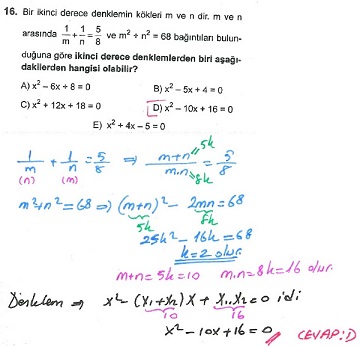 16. Bir ikinci derece denklemin kökleri m ve n dir. m ve n
arasında 1/m + 1/n = 5/8 ve m² + n² = 68 bağıntıları bulun-
duğuna göre ikinci derece denklemlerden biri aşağı-
dakilerden hangisi olabilir?
A) x² – 6x + 8 = 0 B) x² – 5x + 4 = 0
C) x² + 12x + 18 = 0 D) x² – 10x + 16 = 0
E) x² + 4x – 5 = 0
1/m + 1/n = 5/8 ⇒ m+n/m.n = 5/8
(n) (m) 5k 8k
m²+n² = 68 ⇒ (m+n)² - 2mn = 68
5k 8k
25k² - 16k = 68
k = 2 olur.
m+n = 5k = 10 m.n = 8k = 16 olur.
Denklem ⇒ x² - (x₁+x₂)x + x₁.x₂ = 0 idi
10 16
x² - 10x + 16 = 0 // CEVAP: D